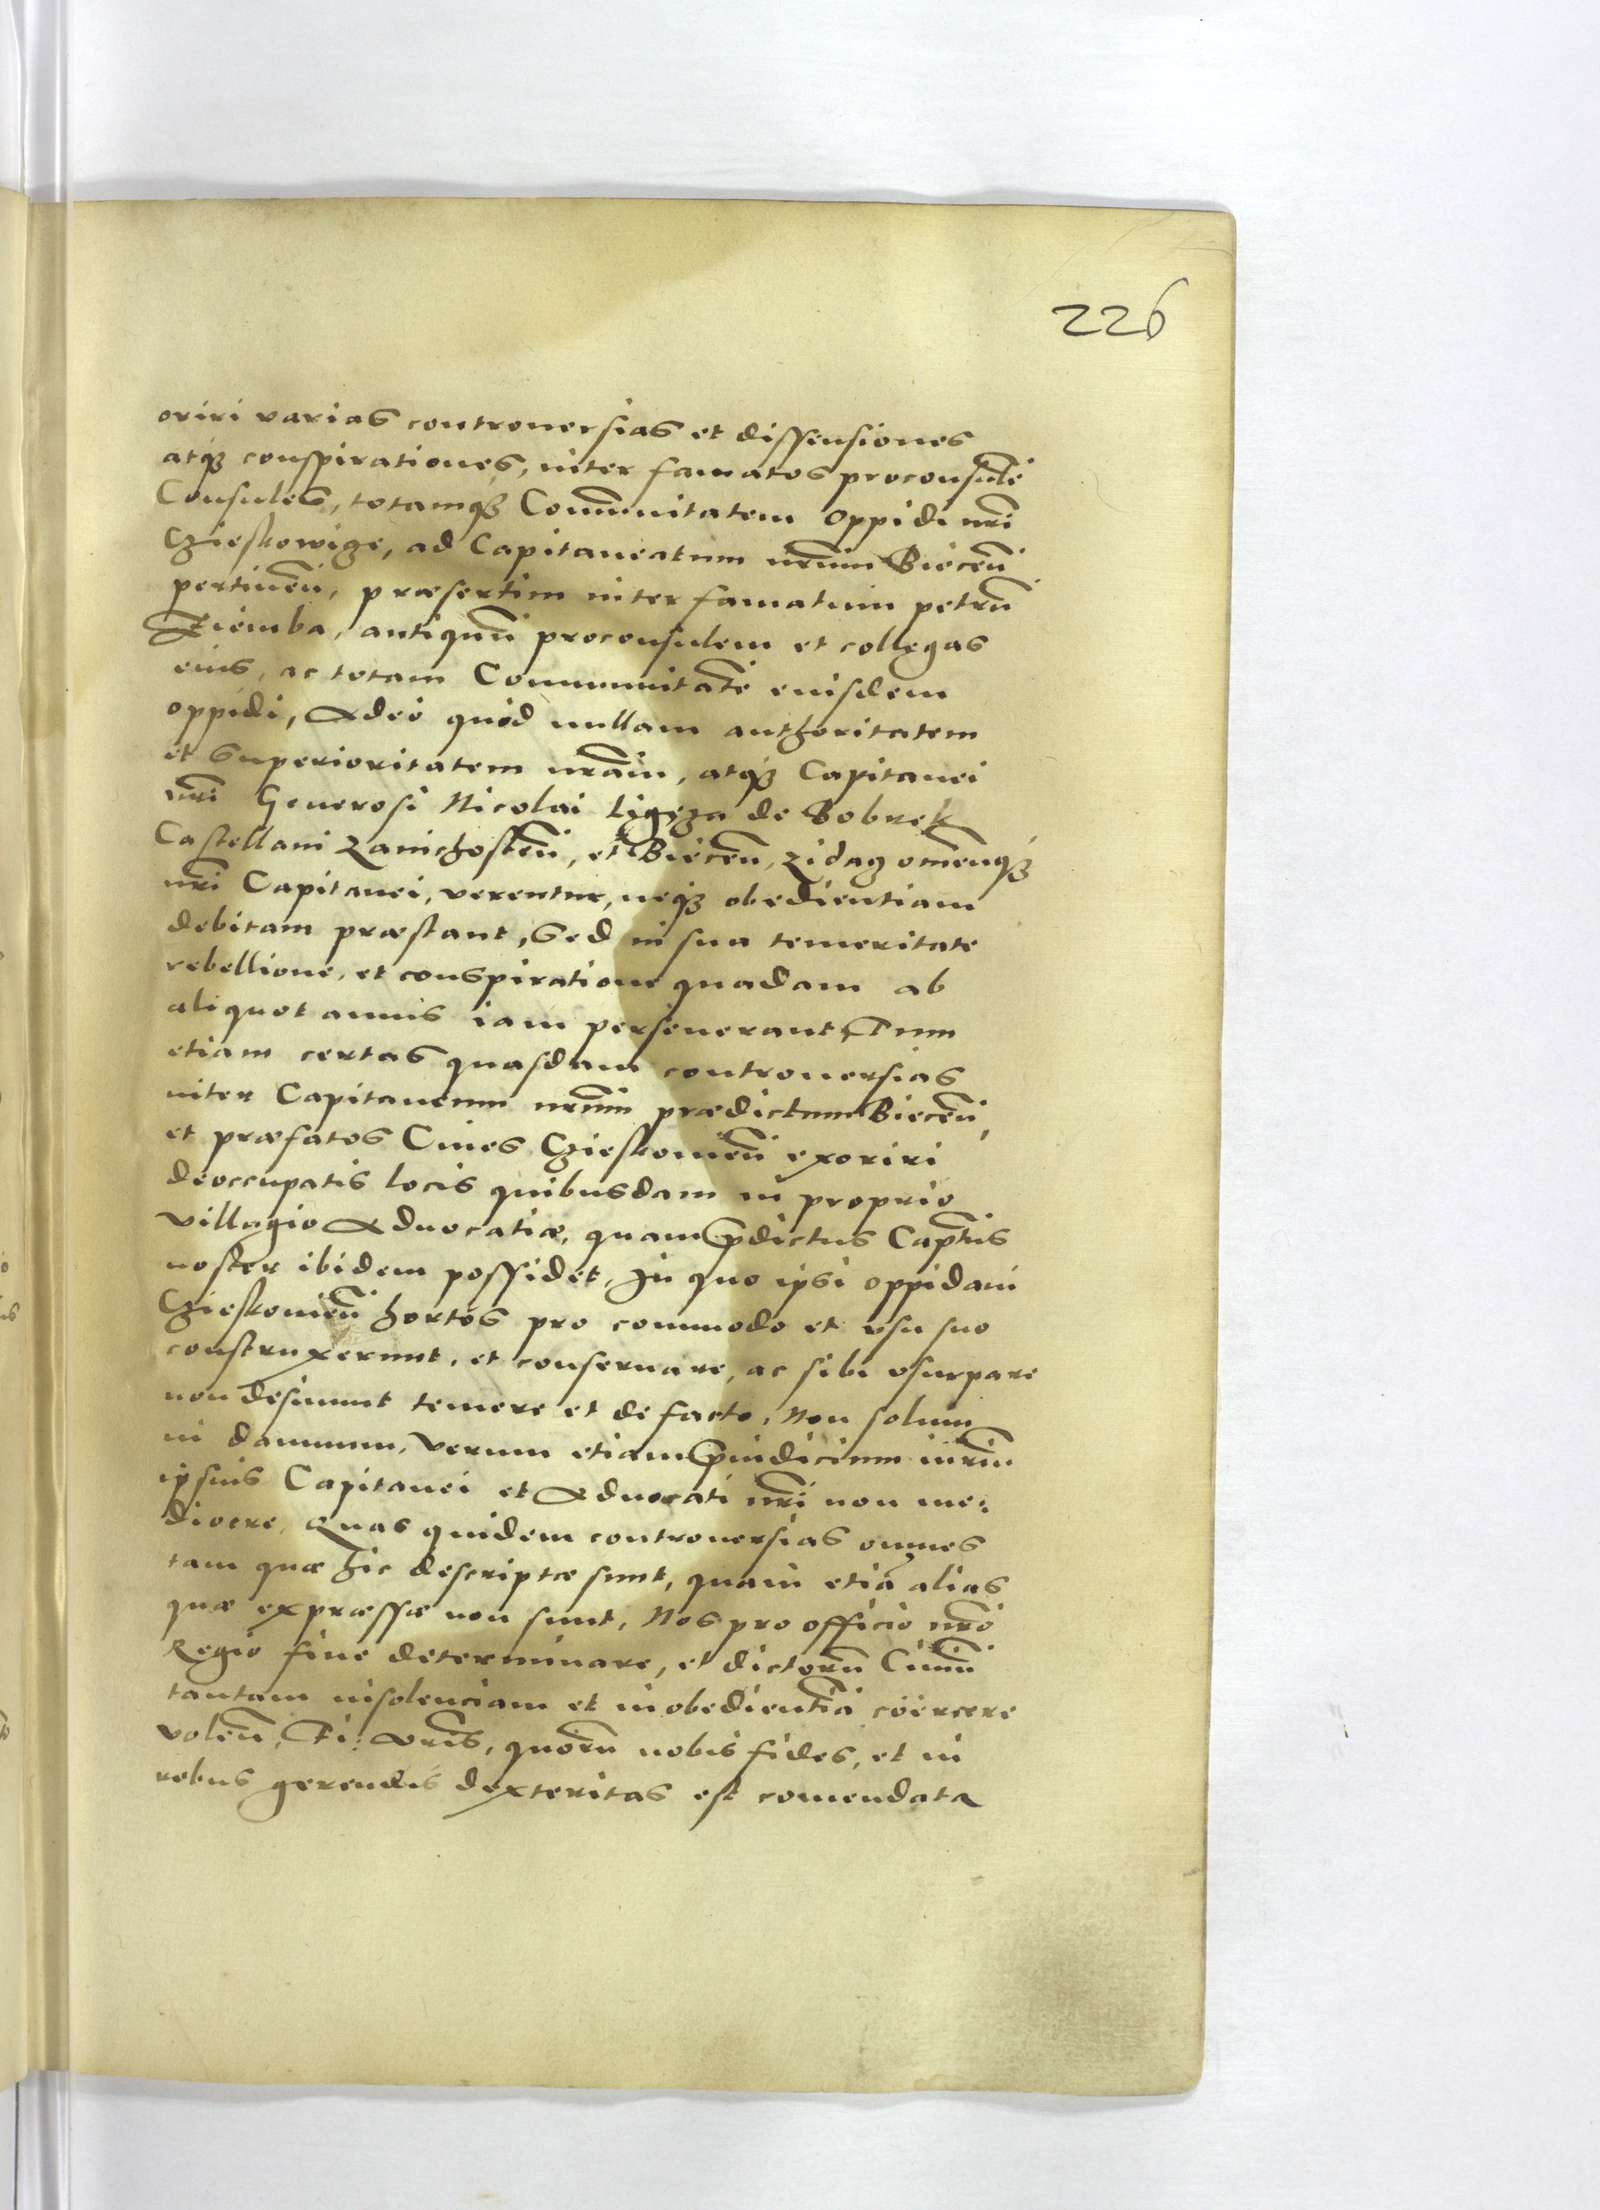 226
oriri varias controuersias et dissensiones
atq3 conspirationes, inter famatos proconsulē
Consules, totamq3 Com̄unitatem Oppidi nr̄i
Cziesskowize, ad Capitaneatum nr̄um Biecen̄
pertinen̄, præsertim inter famatum petrū
Ziemba, antiquū proconsulem et collegas
eius, ac totam Communitatē eiusdem
oppidi, Adeo quod nullam authoritatem
et Superioritatem nr̄am, atq3 Capitanei
nr̄i Generosi Nicolai Ligęza de Bobrek
Castellani Zawichosten̄, et Biecen̄,
nr̄i Capitanei, verentur, neq3 obedientiam
debitam præstant, Sed in sua temeritate
rebellione, et conspiratione quadam ab
aliquot annis iam perseuerant, Tum
etiam certas quasdam controuersias
inter Capitaneum nr̄um prædictum Biecen̄,
et præfatos Ciues Czieskouien̄ exoriri
de occupatis locis quibusdam in proprio
villagio Aduocatiæ, quam p̄dictus Captn̄s
noster ibidem possidet, In quo ipsi oppidani
Czieskouien̄ hortos pro commodo et vsu suo
construxerunt, et conseruare, ac sibi vsurpare
non desinunt temere et de facto, Non solum
in damnum, verum etiam p̄iudicium iuriū
ipsius Capitanei et Aduocati nr̄i non me:
diocre, Quas quidem controuersias omnes
tam quæ hic descriptæ sunt, quam etiā alias
quæ expræssæ non sunt, Nos pro officio nr̄o
Regio fine determinare, et dictorū Ciuiū
tantam insolenciam et inobedientiā coërcere
volen̄, Fi: Vr̄is, quorū nobis fides, et in
rebus gerendis dexteritas est comendata